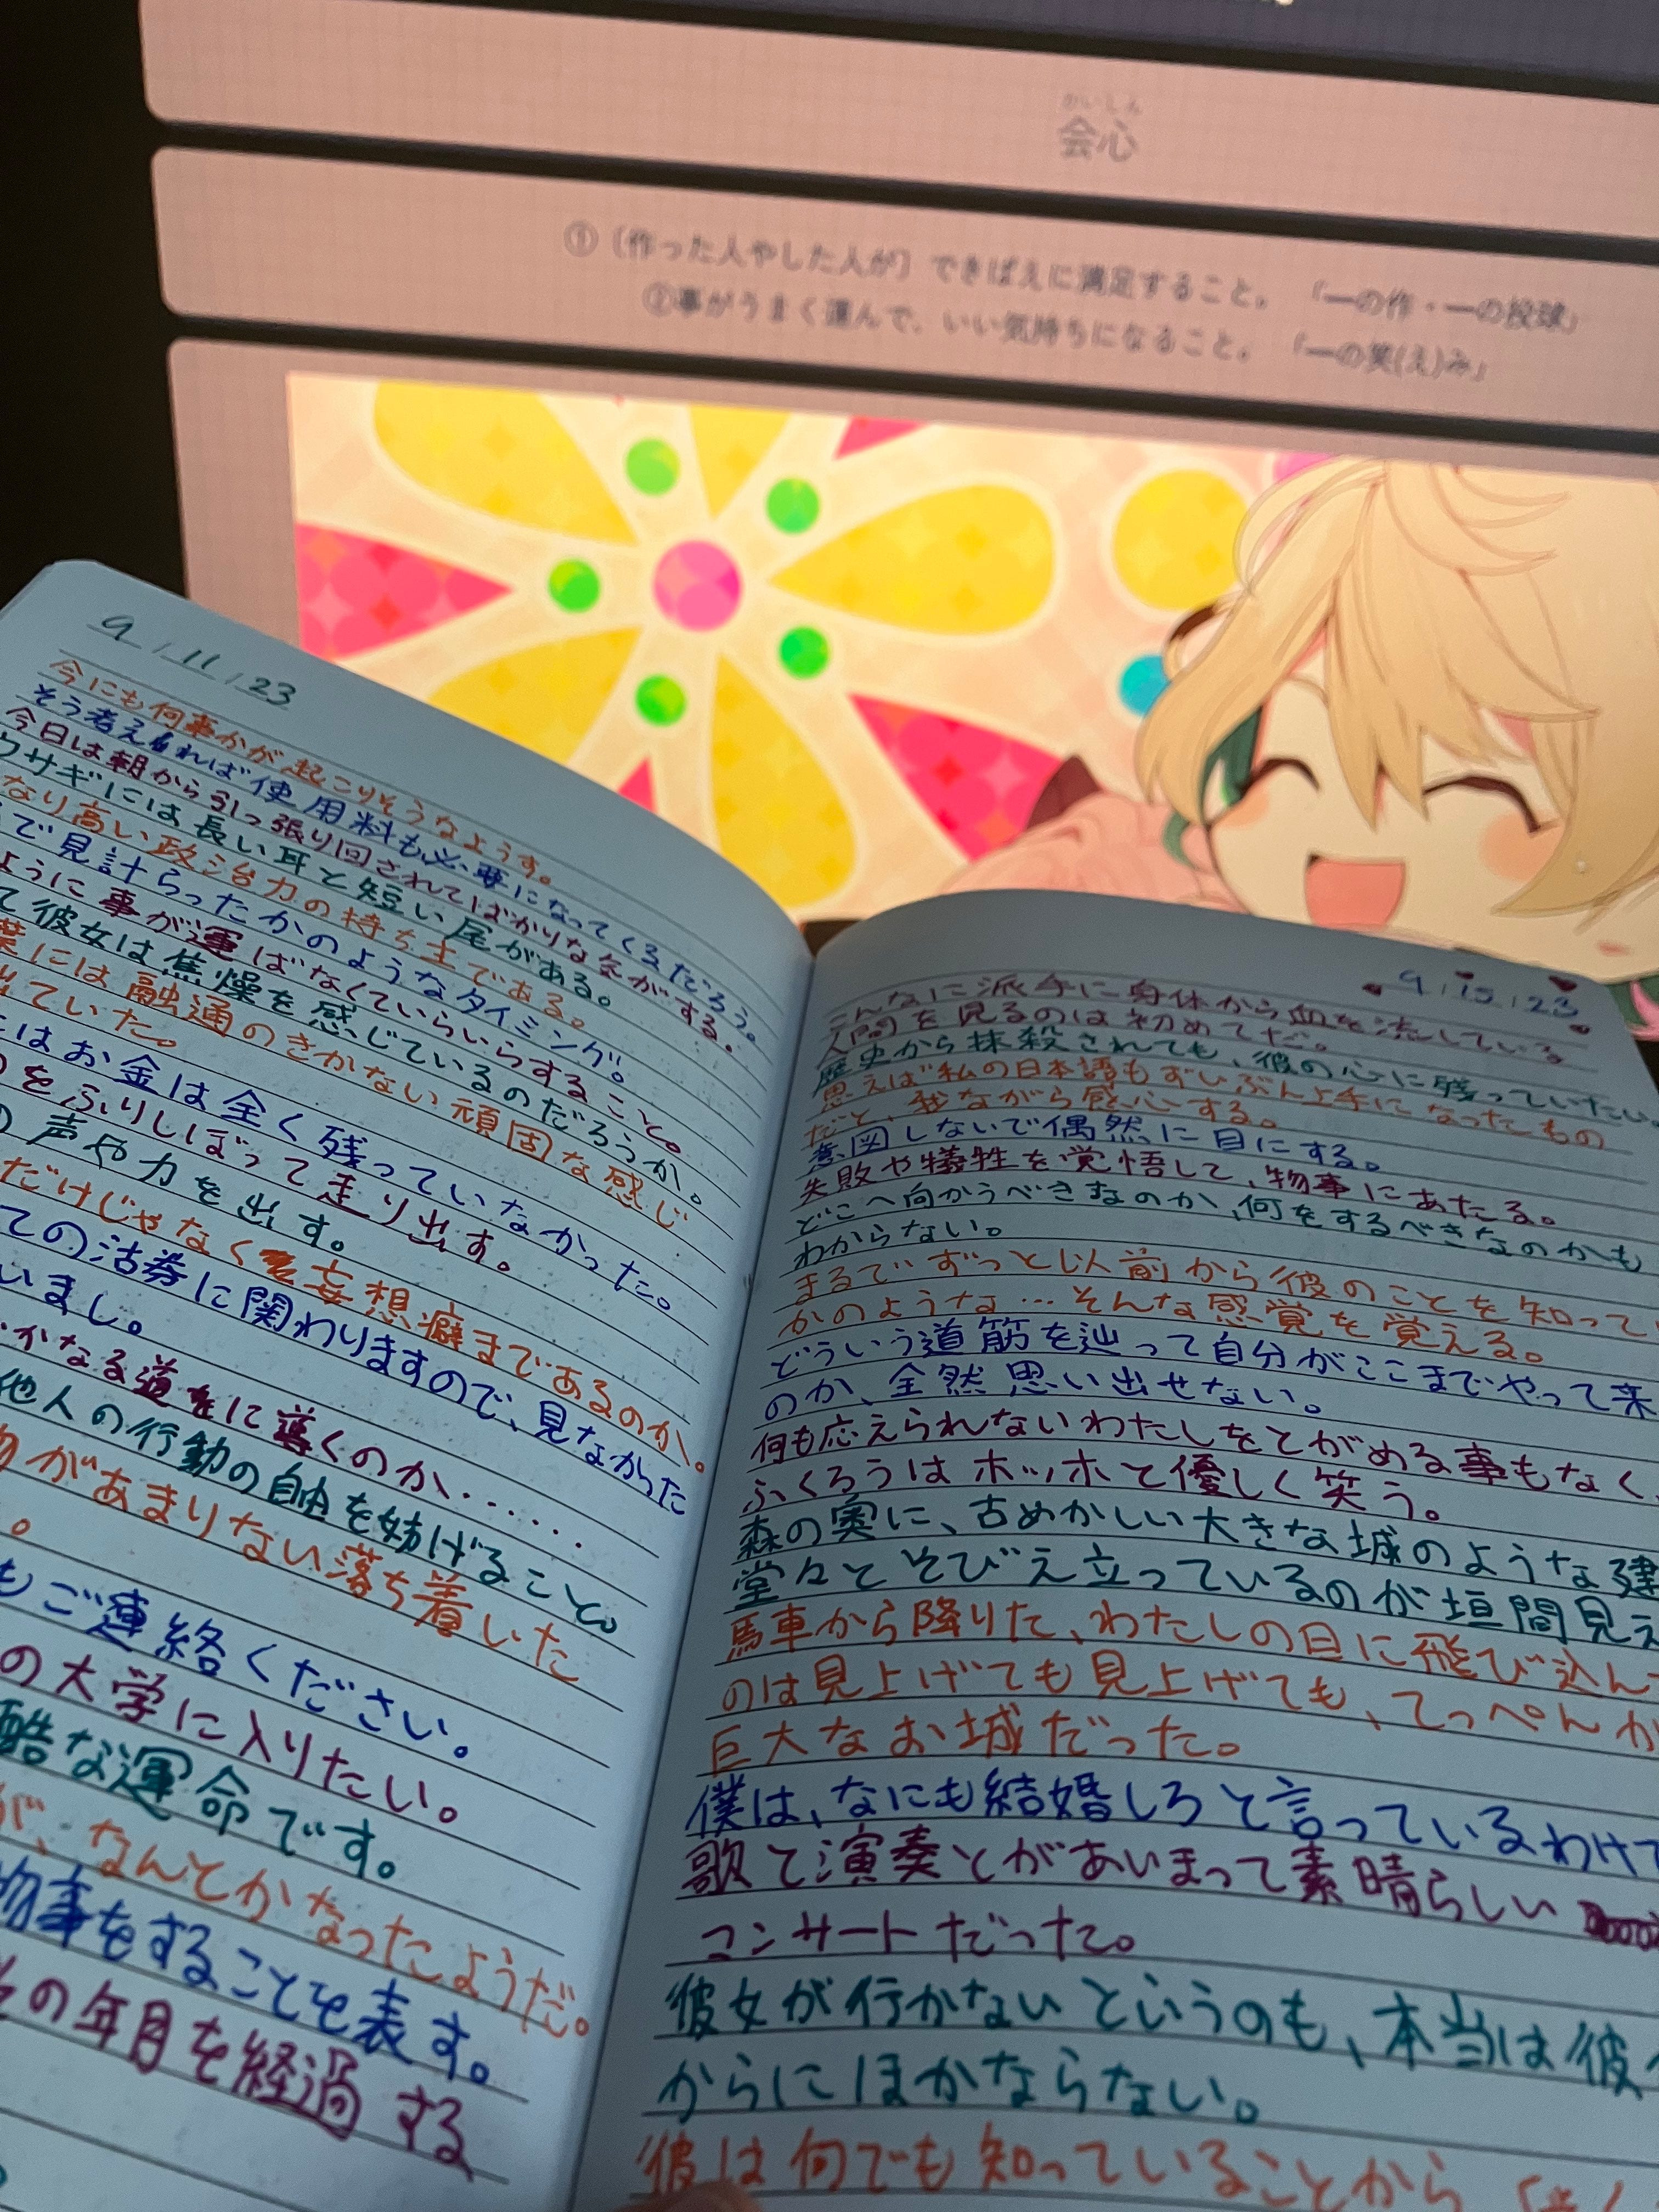 かいしん
会心
①〔作った人やした人が〕できばえに満足すること。「―の作・―の投球」
②事がうまく運んで、いい気持ちになること。「―の笑(え)み」
9/11/23
今にも何事かが起こりそうなようす。
そう考えれば使用料も必要になってくるだろう。
今日は朝から引っ張り回されてばかりな気がする。
ウサギには長い耳と短い尾がある。
なり高い政治力の持ち主である。
で見計らったかのようなタイミング。
ように事が運ばなくていらいらすること。
て彼女は焦燥を感じているのだろうか。
葉には融通のきかない頑固な感じ
ていた。
はお金は全く残っていなかった。
をふりしぼって走り出す。
声や力を出す。
だけじゃなく妄想癖まであるのか。
ての沽券に関わりますので、見なかった
いまし。
かなる道をに導くのか……
他人の行動の自由を妨げること。
があまりない落ち着いた
。
もご連絡ください。
の大学に入りたい。
酷な運命です。
が、なんとかなったようだ。
物事をすることを表す。
その年月を経過する
9/15/23
こんなに派手に身体から血を流している
人間を見るのは初めてだ。
歴史から抹殺されても、彼の心に残っていたい。
思えば私の日本語もずいぶん上手になったもの
だと、我ながら感心する。
意図しないで偶然に目にする。
失敗や犠牲を覚悟して、物事にあたる。
どこへ向かうべきなのか、何をするべきなのかも
わからない。
まるでずっと以前から彼のことを知ってい
かのような…そんな感覚を覚える。
どういう道筋を辿って自分がここまでやって来
のか、全然思い出せない。
何も応えられないわたしをとがめる事もなく、
ふくろうはホッホと優しく笑う。
森の奥に、古めかしい大きな城のような建
堂々とそびえ立っているのが垣間見え
馬車から降りた、わたしの目に飛び込んで
のは見上げても見上げても、てっぺんが
巨大なお城だった。
僕は、なにも結婚しろと言っているわけで
歌と演奏とがあいまって素晴らしい
コンサートだった。
彼女が行かないというのも、本当は彼
からにほかならない。
彼は何でも知っていることから